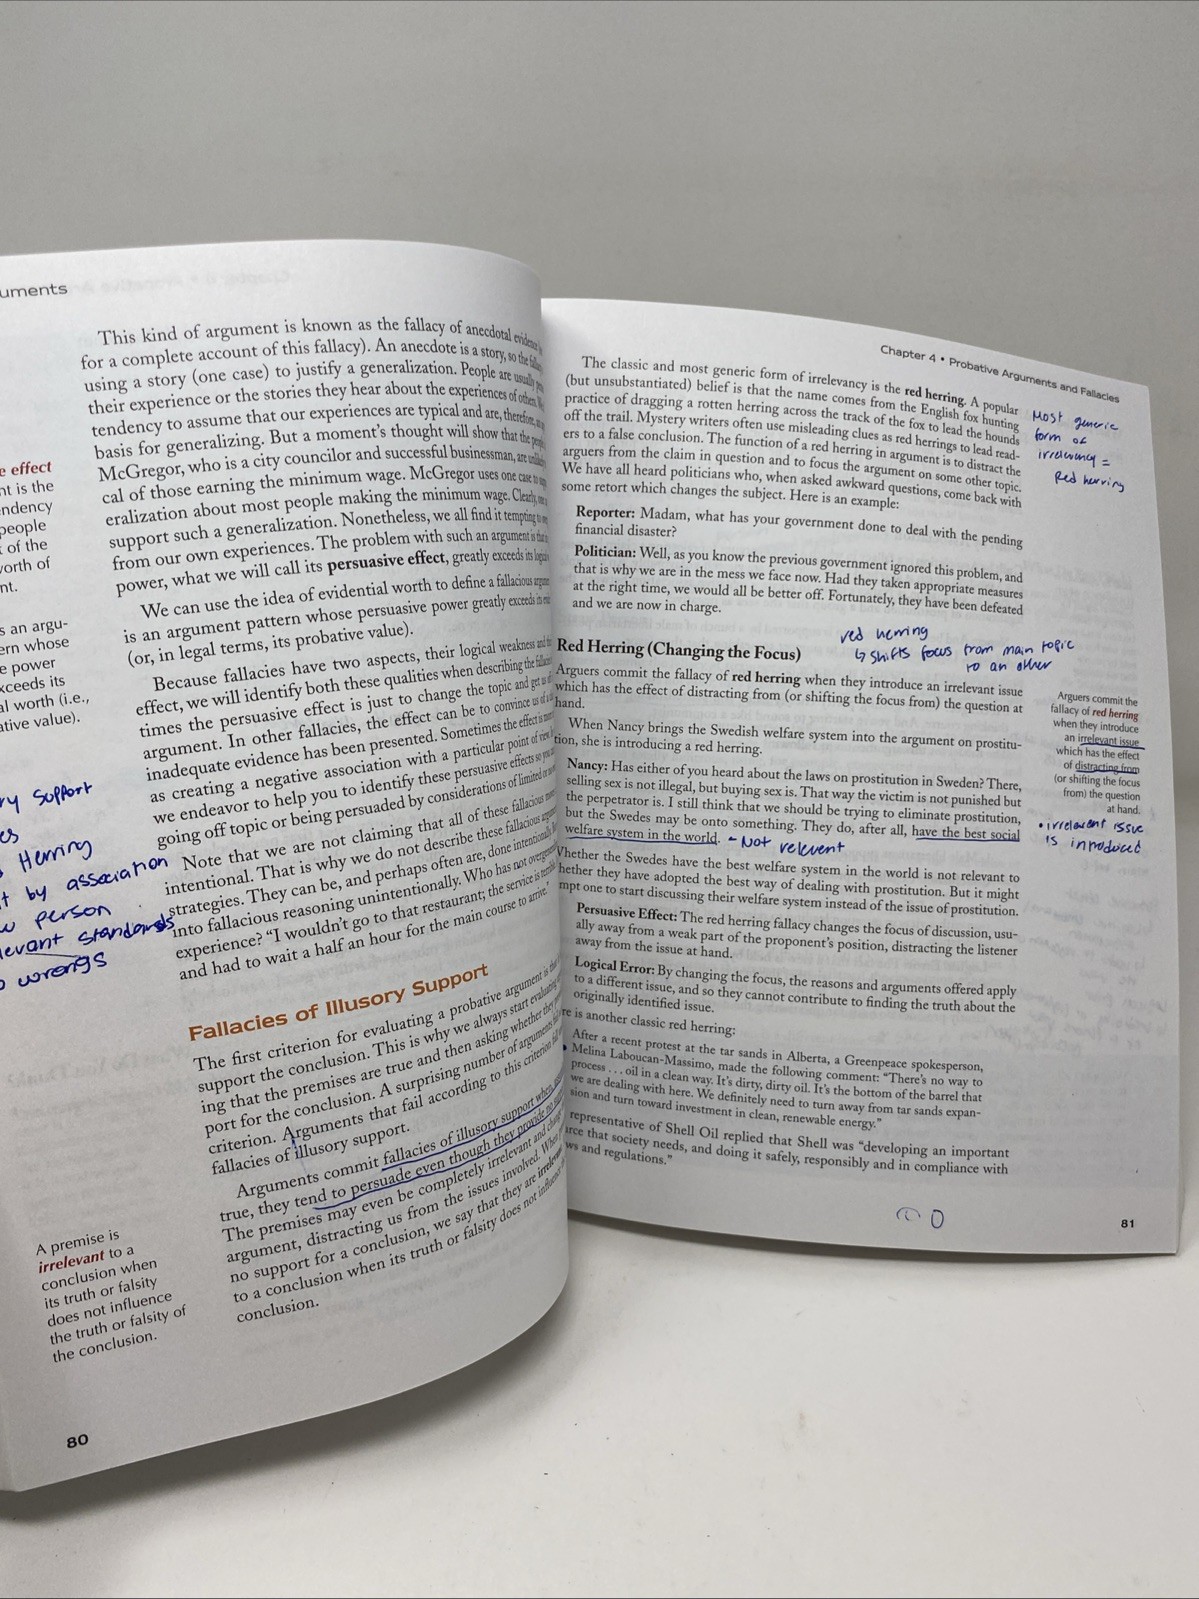 uments
This kind of argument is known as the fallacy of anecdotal evidence
for a complete account of this fallacy). An anecdote is a story, so the
using a story (one case) to justify a generalization. People are usually
their experience or the stories they hear about the experiences of others.
tendency to assume that our experiences are typical and are, therefore,
basis for generalizing. But a moment's thought will show that the
McGregor, who is a city councilor and successful businessman, are
cal of those earning the minimum wage. McGregor uses one case to
eralization about most people making the minimum wage. Clearly,
support such a generalization. Nonetheless, we all find it tempting to
from our own experiences. The problem with such an argument is that
power, what we will call its persuasive effect, greatly exceeds its
We can use the idea of evidential worth to define a fallacious
is an argument pattern whose persuasive power greatly exceeds its
(or, in legal terms, its probative value).
Because fallacies have two aspects, their logical weakness and
effect, we will identify both these qualities when describing the
times the persuasive effect is just to change the topic and get us
argument. In other fallacies, the effect can be to convince us
inadequate evidence has been presented. Sometimes the effect is
as creating a negative association with a particular point of view.
we endeavor to help you to identify these persuasive effects so
going off topic or being persuaded by considerations of limited
Note that we are not claiming that all of these fallacious
intentional. That is why we do not describe these fallacious
strategies. They can be, and perhaps often are, done intentionally.
into fallacious reasoning unintentionally. Who has not
experience? "I wouldn't go to that restaurant; the service is
and had to wait a half an hour for the main course to arrive."
e effect
nt is the
ndency
people
of the
worth of
nt.
s an argu-
ern whose
e power
xceeds its
al worth (i.e.,
ative value).
ry support
es
Herring
t by association
person
levant standards
wrongs
Fallacies of Illusory Support
The first criterion for evaluating a probative argument is
support the conclusion. This is why we always start evaluating
ing that the premises are true and then asking whether they
port for the conclusion. A surprising number of arguments
criterion. Arguments that fail according to this criterion
fallacies of illusory support.
Arguments commit fallacies of illusory support when,
true, they tend to persuade even though they provide no
The premises may even be completely irrelevant and
argument, distracting us from the issues involved. When
no support for a conclusion, we say that they are irrelevant
to a conclusion when its truth or falsity does not influence
conclusion.
A premise is
irrelevant to a
conclusion when
its truth or falsity
does not influence
the truth or falsity of
the conclusion.
80
Chapter 4 • Probative Arguments and Fallacies
The classic and most generic form of irrelevancy is the red herring. A popular
(but unsubstantiated) belief is that the name comes from the English fox hunting
practice of dragging a rotten herring across the track of the fox to lead the hounds
off the trail. Mystery writers often use misleading clues as red herrings to lead read-
ers to a false conclusion. The function of a red herring in argument is to distract the
arguers from the claim in question and to focus the argument on some other topic.
We have all heard politicians who, when asked awkward questions, come back with
some retort which changes the subject. Here is an example:
Most generic
form of
irrelevancy =
Red herring
Reporter: Madam, what has your government done to deal with the pending
financial disaster?
Politician: Well, as you know the previous government ignored this problem, and
that is why we are in the mess we face now. Had they taken appropriate measures
at the right time, we would all be better off. Fortunately, they have been defeated
and we are now in charge.
Red Herring (Changing the Focus)
red herring
↳ shifts focus from main topic
to an other
Arguers commit the fallacy of red herring when they introduce an irrelevant issue
which has the effect of distracting from (or shifting the focus from) the question at
hand.
When Nancy brings the Swedish welfare system into the argument on prostitu-
tion, she is introducing a red herring.
Nancy: Has either of you heard about the laws on prostitution in Sweden? There,
selling sex is not illegal, but buying sex is. That way the victim is not punished but
the perpetrator is. I still think that we should be trying to eliminate prostitution,
but the Swedes may be onto something. They do, after all, have the best social
welfare system in the world. - Not relevent
Arguers commit the
fallacy of red herring
when they introduce
an irrelevant issue
which has the effect
of distracting from
(or shifting the focus
from) the question
at hand.
• irrelevant issue
is introduced
Whether the Swedes have the best welfare system in the world is not relevant to
hether they have adopted the best way of dealing with prostitution. But it might
mpt one to start discussing their welfare system instead of the issue of prostitution.
Persuasive Effect: The red herring fallacy changes the focus of discussion, usu-
ally away from a weak part of the proponent's position, distracting the listener
away from the issue at hand.
Logical Error: By changing the focus, the reasons and arguments offered apply
to a different issue, and so they cannot contribute to finding the truth about the
originally identified issue.
re is another classic red herring:
After a recent protest at the tar sands in Alberta, a Greenpeace spokesperson,
Melina Laboucan-Massimo, made the following comment: "There's no way to
process . . . oil in a clean way. It's dirty, dirty oil. It's the bottom of the barrel that
we are dealing with here. We definitely need to turn away from tar sands expan-
sion and turn toward investment in clean, renewable energy."
representative of Shell Oil replied that Shell was "developing an important
rce that society needs, and doing it safely, responsibly and in compliance with
ws and regulations."
81